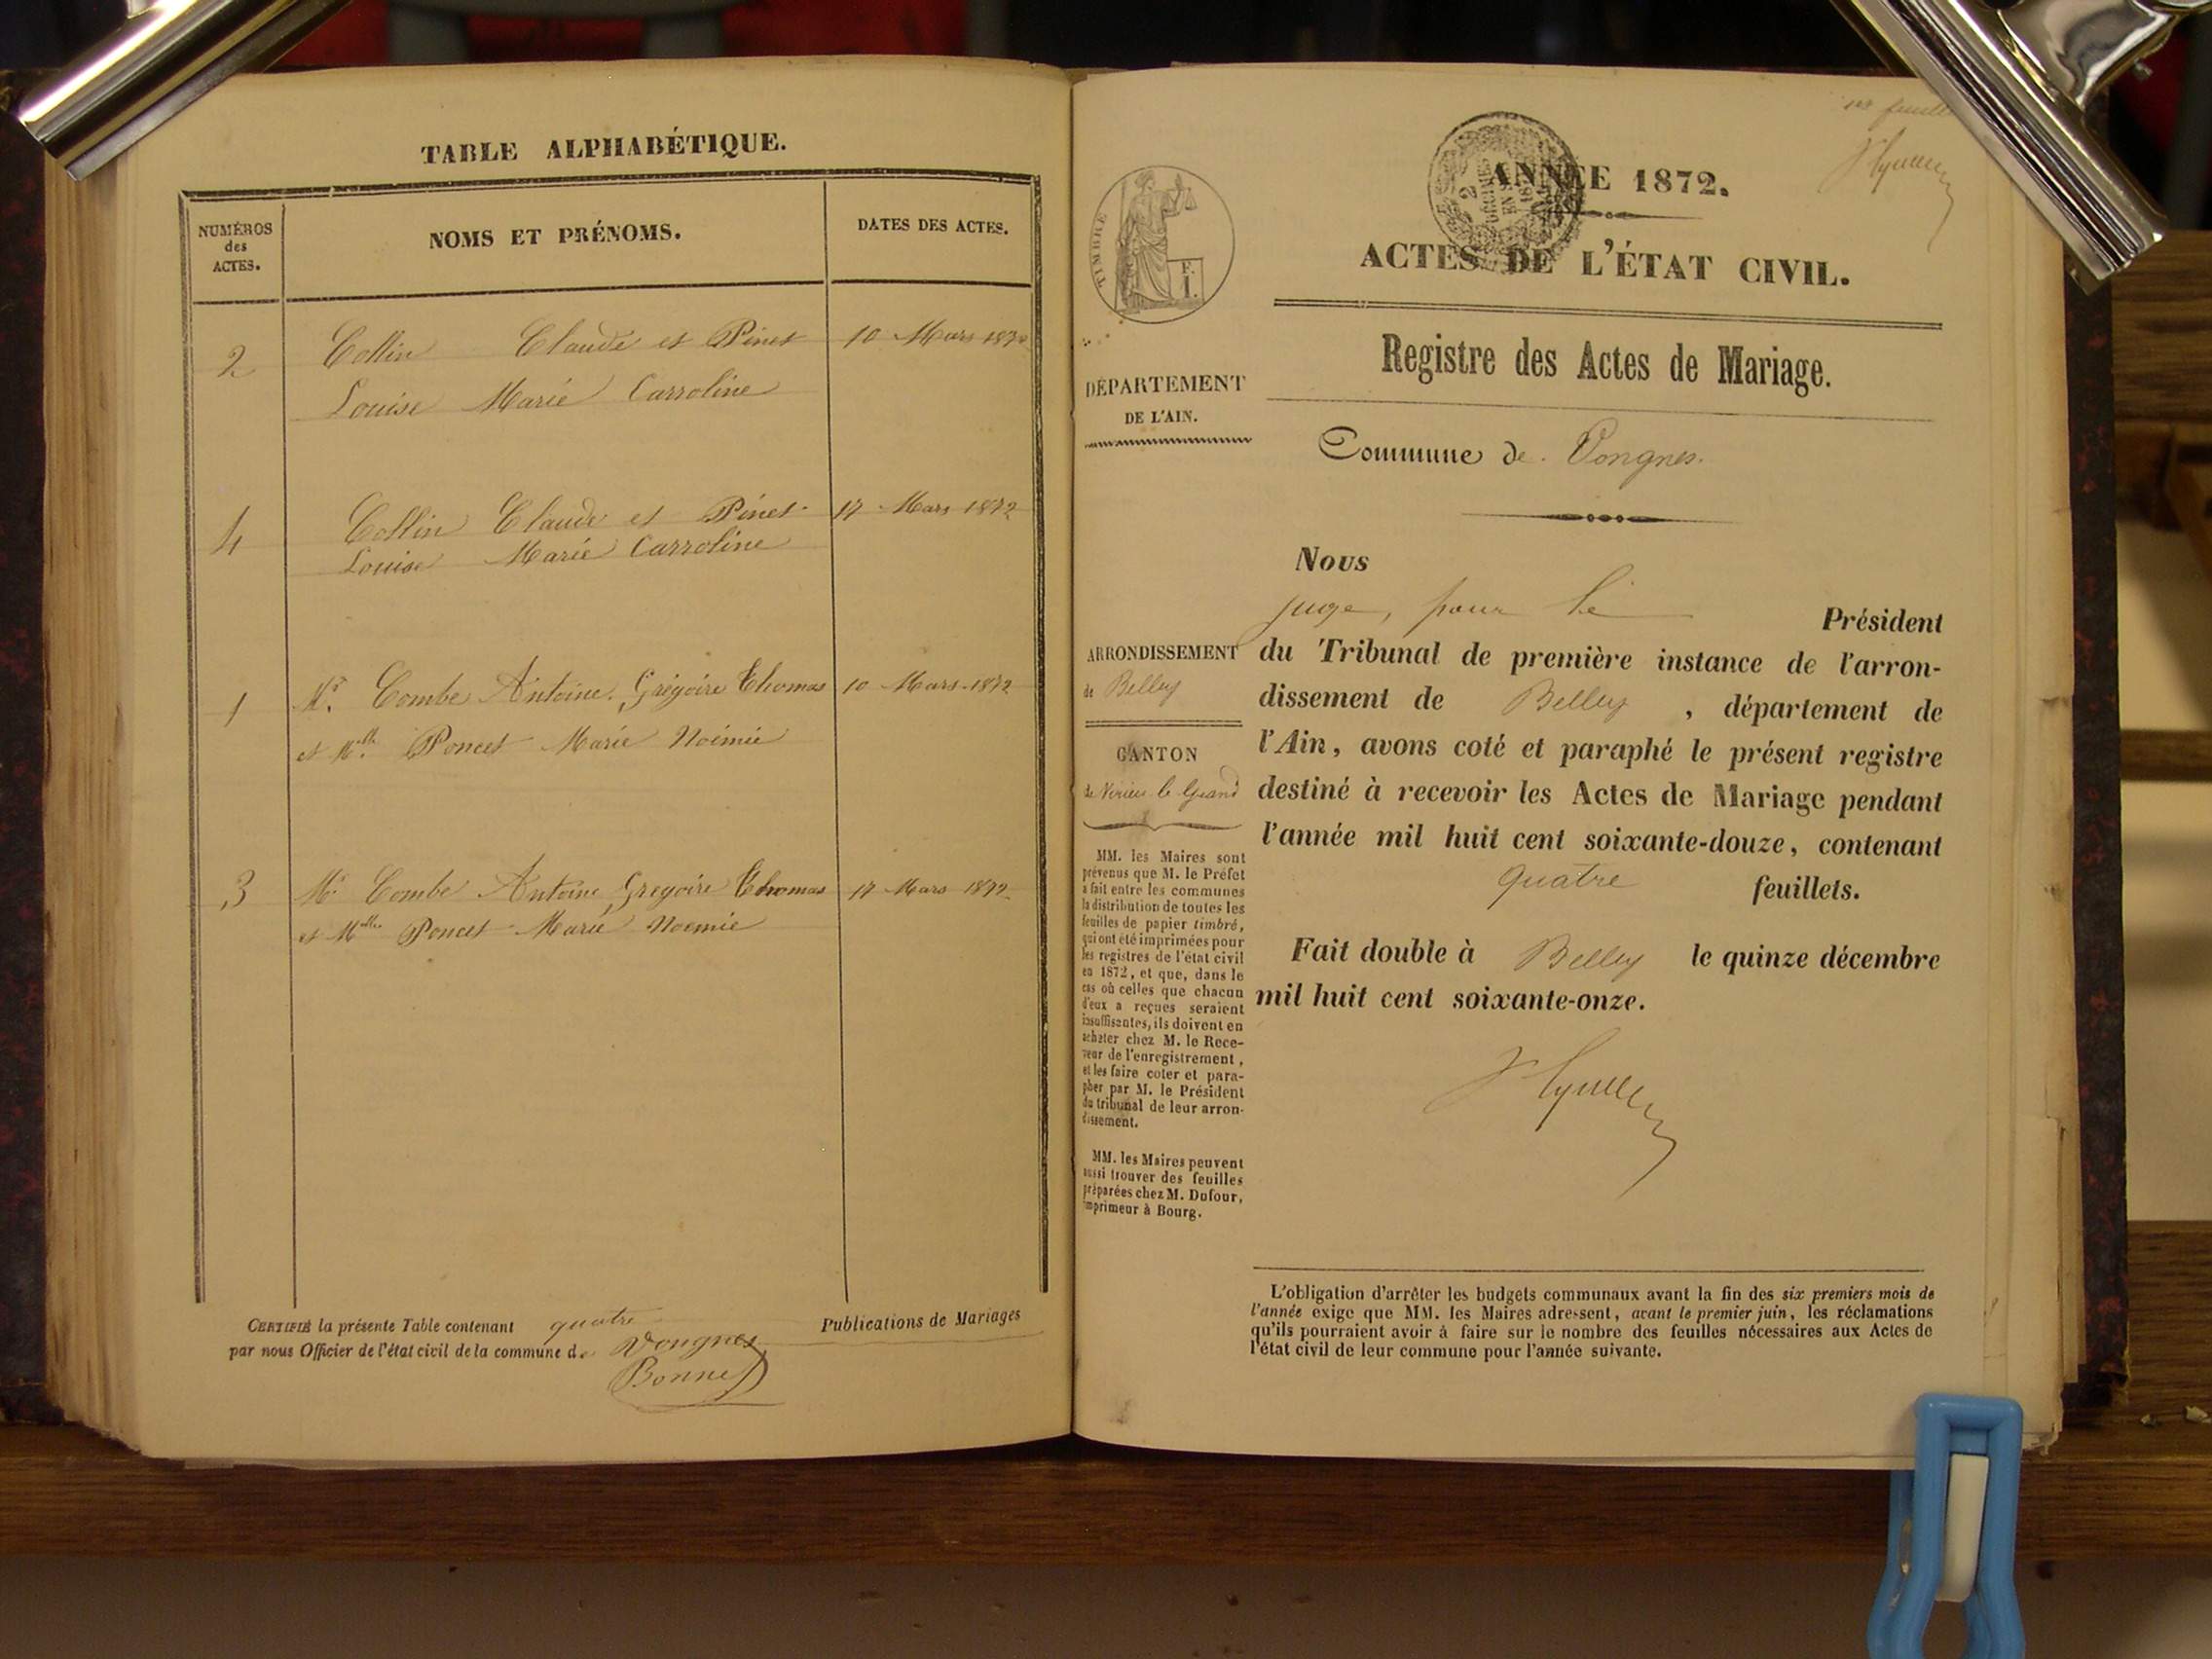 TABLE ALPHABÉTIQUE.
NUMÉROS
des
ACTES.
NOMS ET PRÉNOMS.
DATES DES ACTES.
2 Collin Claude et Pinet 10 Mars 1872
Louise Marie Carroline
4 Collin Claude et Pinet 17 Mars 1872
Louise Marie Carroline
1 Mr. Combe Antoine Grégoire Thomas 10 Mars 1872
et Melle Poncet Marie Noémie
3 Mr Combe Antoine Gregoire Thomas 17 Mars 1872
et Melle Poncet Marie Noemie
CERTIFIÉ la présente Table contenant quatre Publications de Mariages
par nous Officier de l'état civil de la commune de Vongnes
Bonnet
TIMBRE
F.
I.
DÉPARTEMENT
DE L'AIN.
ARRONDISSEMENT
de Belley
CANTON
de Virieu le Grand
MM. les Maires sont
prévenus que M. le Préfet
a fait entre les communes
la distribution de toutes les
feuilles de papier timbré,
qui ont été imprimées pour
les registres de l'état civil
en 1872, et que, dans le
cas où celles que chacun
d'eux a reçues seraient
insuffisantes, ils doivent en
acheter chez M. le Rece-
veur de l'enregistrement,
et les faire coter et para-
pher par M. le Président
du tribunal de leur arron-
dissement.
MM. les Maires peuvent
aussi trouver des feuilles
préparées chez M. Dufour,
imprimeur à Bourg.
ANNÉE 1872.
ACTES DE L'ÉTAT CIVIL.
Registre des Actes de Mariage.
Commune de Vongnes.
Nous
juge, pour le Président
du Tribunal de première instance de l'arron-
dissement de Belley, département de
l'Ain, avons coté et paraphé le présent registre
destiné à recevoir les Actes de Mariage pendant
l'année mil huit cent soixante-douze, contenant
quatre feuillets.
Fait double à Belley le quinze décembre
mil huit cent soixante-onze.
L'obligation d'arrêter les budgets communaux avant la fin des six premiers mois de
l'année exige que MM. les Maires adressent, avant le premier juin, les réclamations
qu'ils pourraient avoir à faire sur le nombre des feuilles nécessaires aux Actes de
l'état civil de leur commune pour l'année suivante.